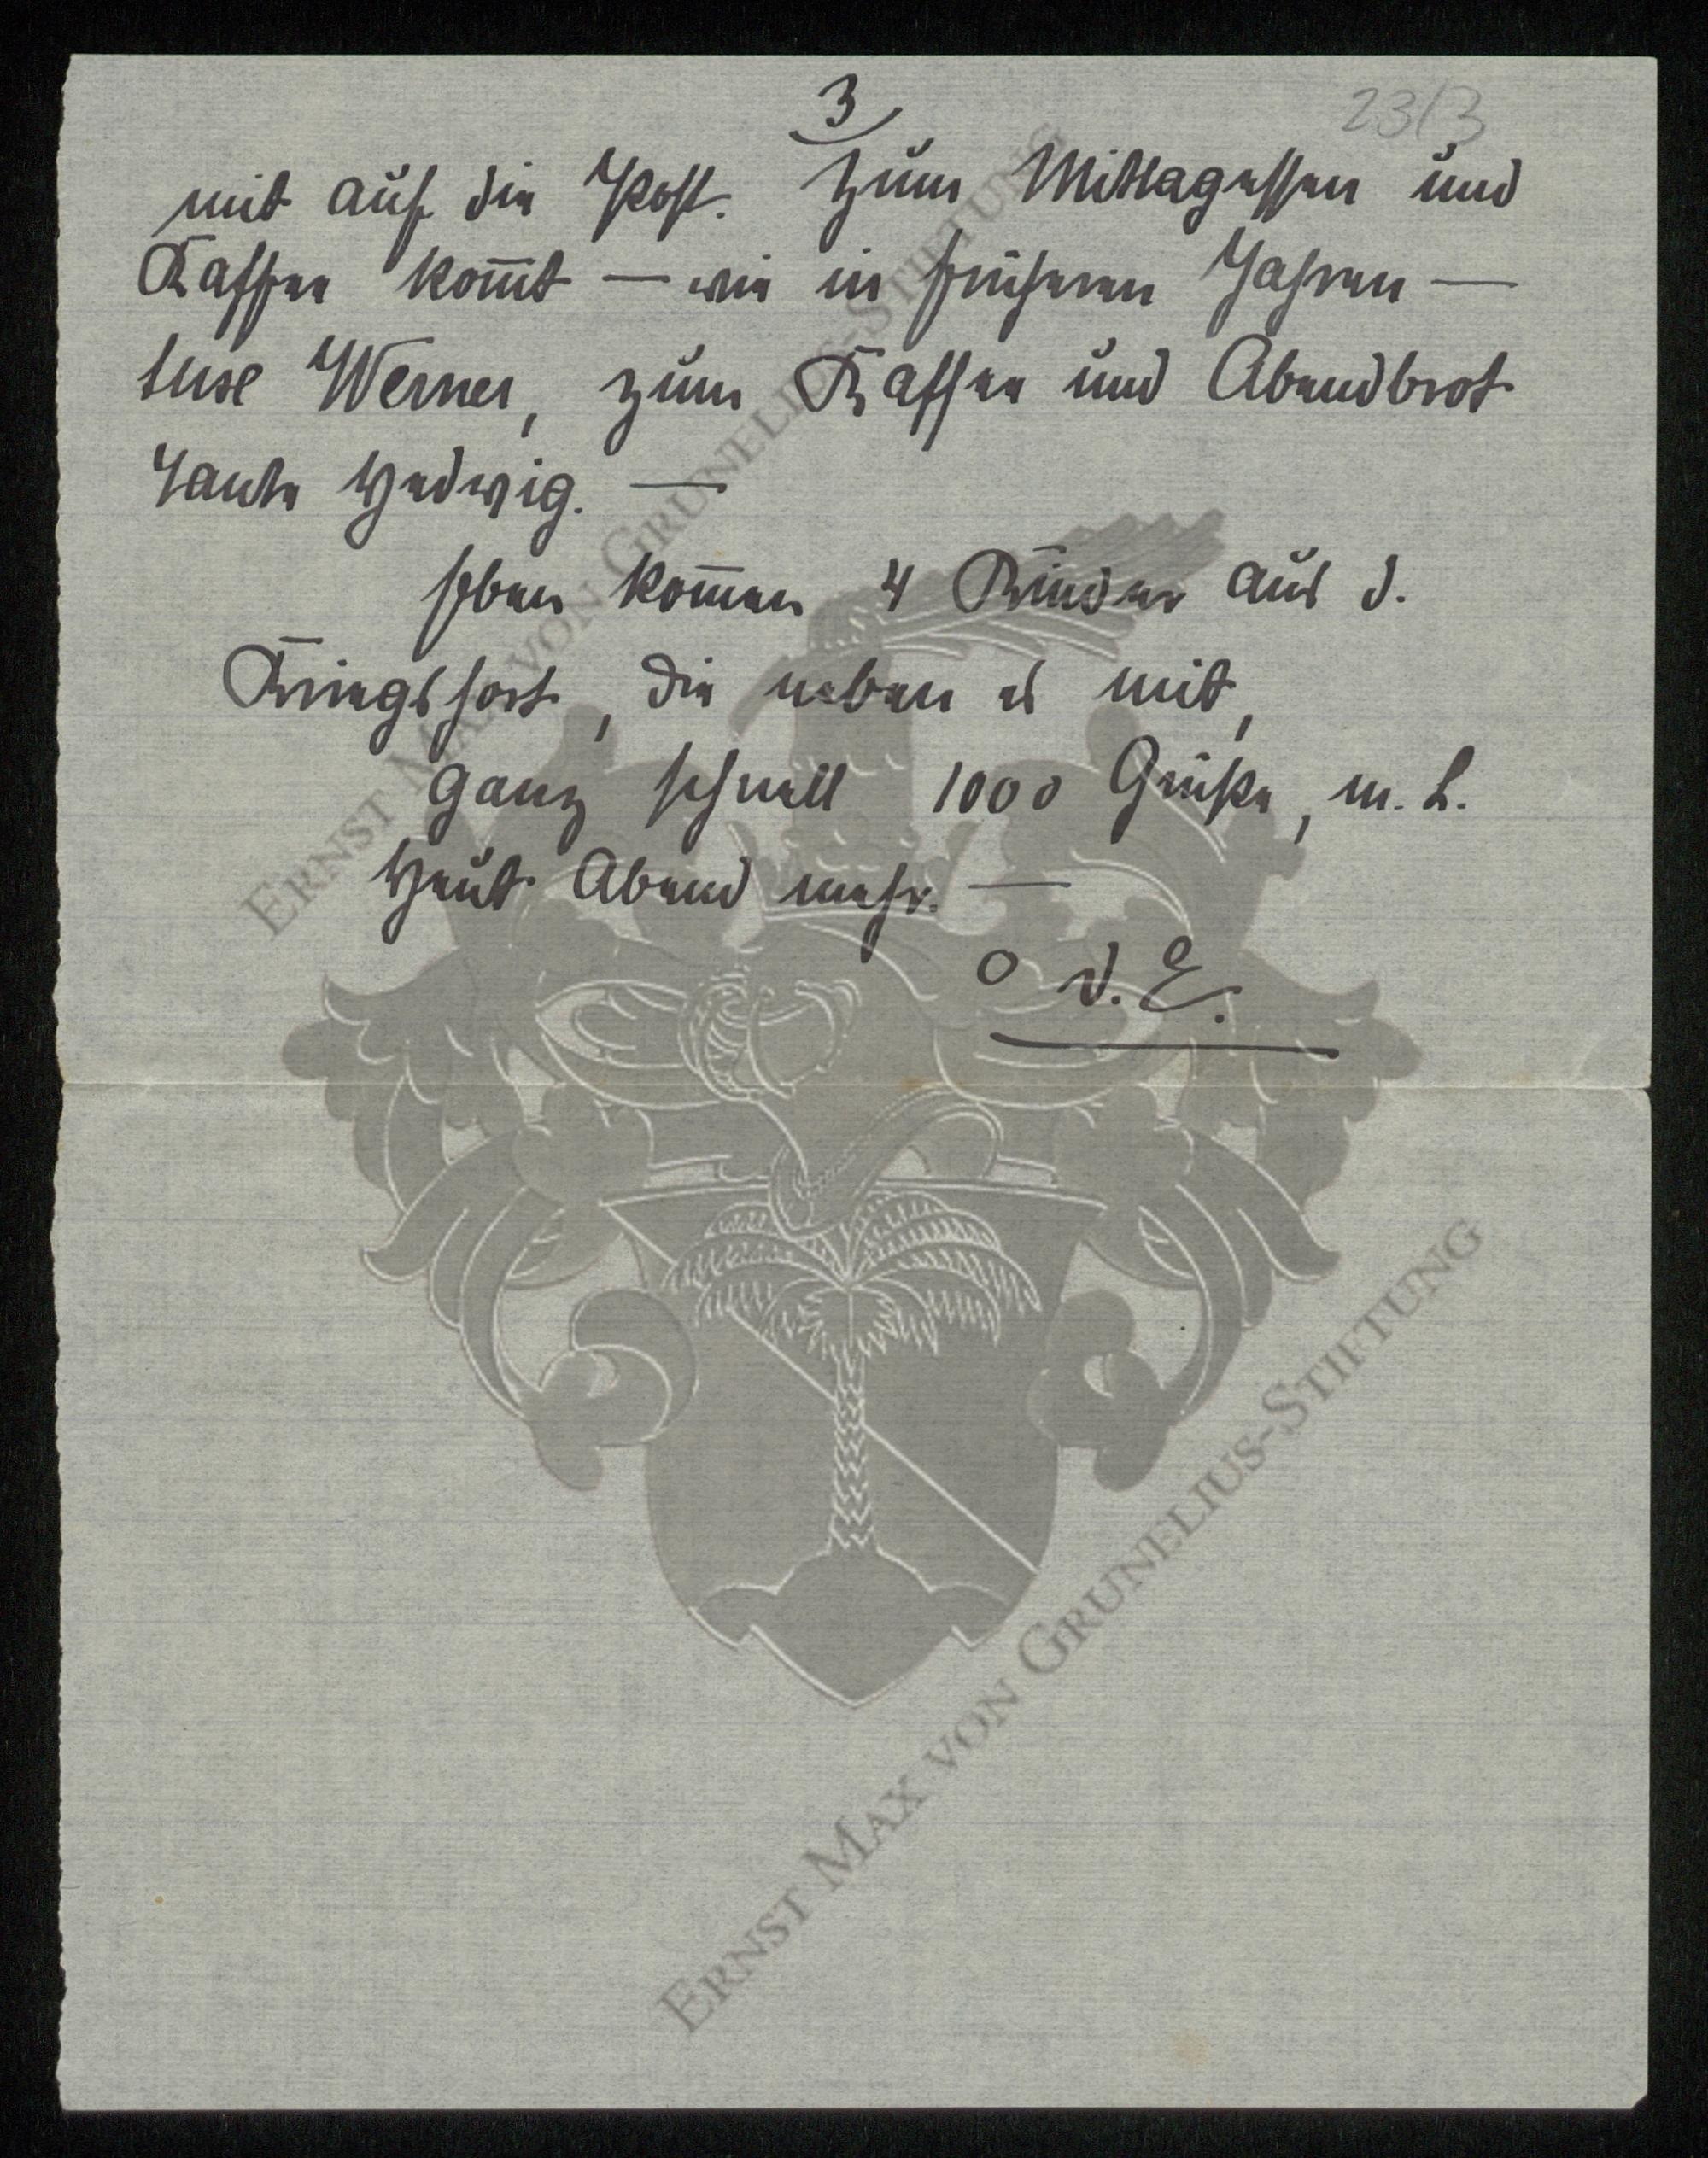 3
23/3
mit auf die Post. Zum Mittagessen und
Kaffee kom̅t — wie in früheren Jahren —
Luse Werner, zum Kaffee und Abendbrot
Tante Hedwig. —
Eben kom̅en 4 Kinder aus d.
Kriegshort, die neben es mit,
ganz schnell 1000 Grüße, m. L.
Heut Abend mehr. —
O D. E.
ERNST MAX VON GRUNELIUS-STIFTUNG
ERNST MAX VON GRUNELIUS-STIFTUNG